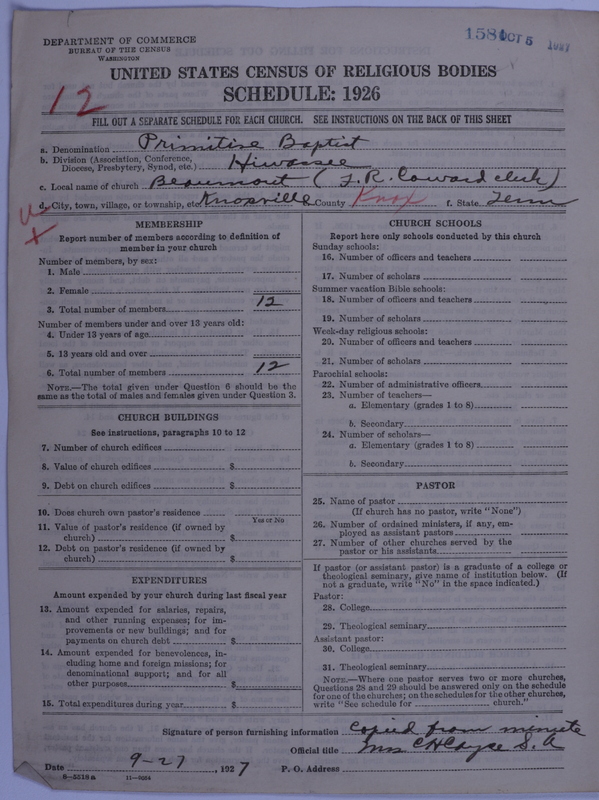 DEPARTMENT OF COMMERCE
BUREAU OF THE CENSUS
WASHINGTON
158 OCT 5 1927
UNITED STATES CENSUS OF RELIGIOUS BODIES
SCHEDULE: 1926
12
FILL OUT A SEPARATE SCHEDULE FOR EACH CHURCH. SEE INSTRUCTIONS ON THE BACK OF THIS SHEET
a. Denomination Primitive Baptist
b. Division (Association, Conference, Diocese, Presbytery, Synod, etc.) Hiwassee
c. Local name of church Beaumont (J. R. Coward clerk)
d. City, town, village, or township, etc. Knoxville County Knox f. State Tenn
MEMBERSHIP
Report number of members according to definition of
member in your church
Number of members, by sex:
1. Male
2. Female
3. Total number of members 12
Number of members under and over 13 years old:
4. Under 13 years of age
5. 13 years old and over
6. Total number of members 12
NOTE.—The total given under Question 6 should be the
same as the total of males and females given under Question 3.
CHURCH BUILDINGS
See instructions, paragraphs 10 to 12
7. Number of church edifices
8. Value of church edifices $
9. Debt on church edifices $
10. Does church own pastor's residence
Yes or No
11. Value of pastor's residence (if owned by
church) $
12. Debt on pastor's residence (if owned by
church) $
EXPENDITURES
Amount expended by your church during last fiscal year
13. Amount expended for salaries, repairs,
and other running expenses; for im-
provements or new buildings; and for
payments on church debt $
14. Amount expended for benevolences, in-
cluding home and foreign missions; for
denominational support; and for all
other purposes $
15. Total expenditures during year $
CHURCH SCHOOLS
Report here only schools conducted by this church
Sunday schools:
16. Number of officers and teachers
17. Number of scholars
Summer vacation Bible schools:
18. Number of officers and teachers
19. Number of scholars
Week-day religious schools:
20. Number of officers and teachers
21. Number of scholars
Parochial schools:
22. Number of administrative officers
23. Number of teachers—
a. Elementary (grades 1 to 8)
b. Secondary
24. Number of scholars—
a. Elementary (grades 1 to 8)
b. Secondary
PASTOR
25. Name of pastor
(If church has no pastor, write "None")
26. Number of ordained ministers, if any, em-
ployed as assistant pastors
27. Number of other churches served by the
pastor or his assistants
If pastor (or assistant pastor) is a graduate of a college or
theological seminary, give name of institution below. (If
not a graduate, write "No" in the space indicated.)
Pastor:
28. College
29. Theological seminary
Assistant pastor:
30. College
31. Theological seminary
NOTE.—Where one pastor serves two or more churches,
Questions 28 and 29 should be answered only on the schedule
for one of the churches; on the schedules for the other churches,
write "See schedule for church."
Signature of person furnishing information Copied from minute
Official title Mrs C H Cayce S. A
Date 9-27, 1927 P. O. Address
8-5518a 11-9064